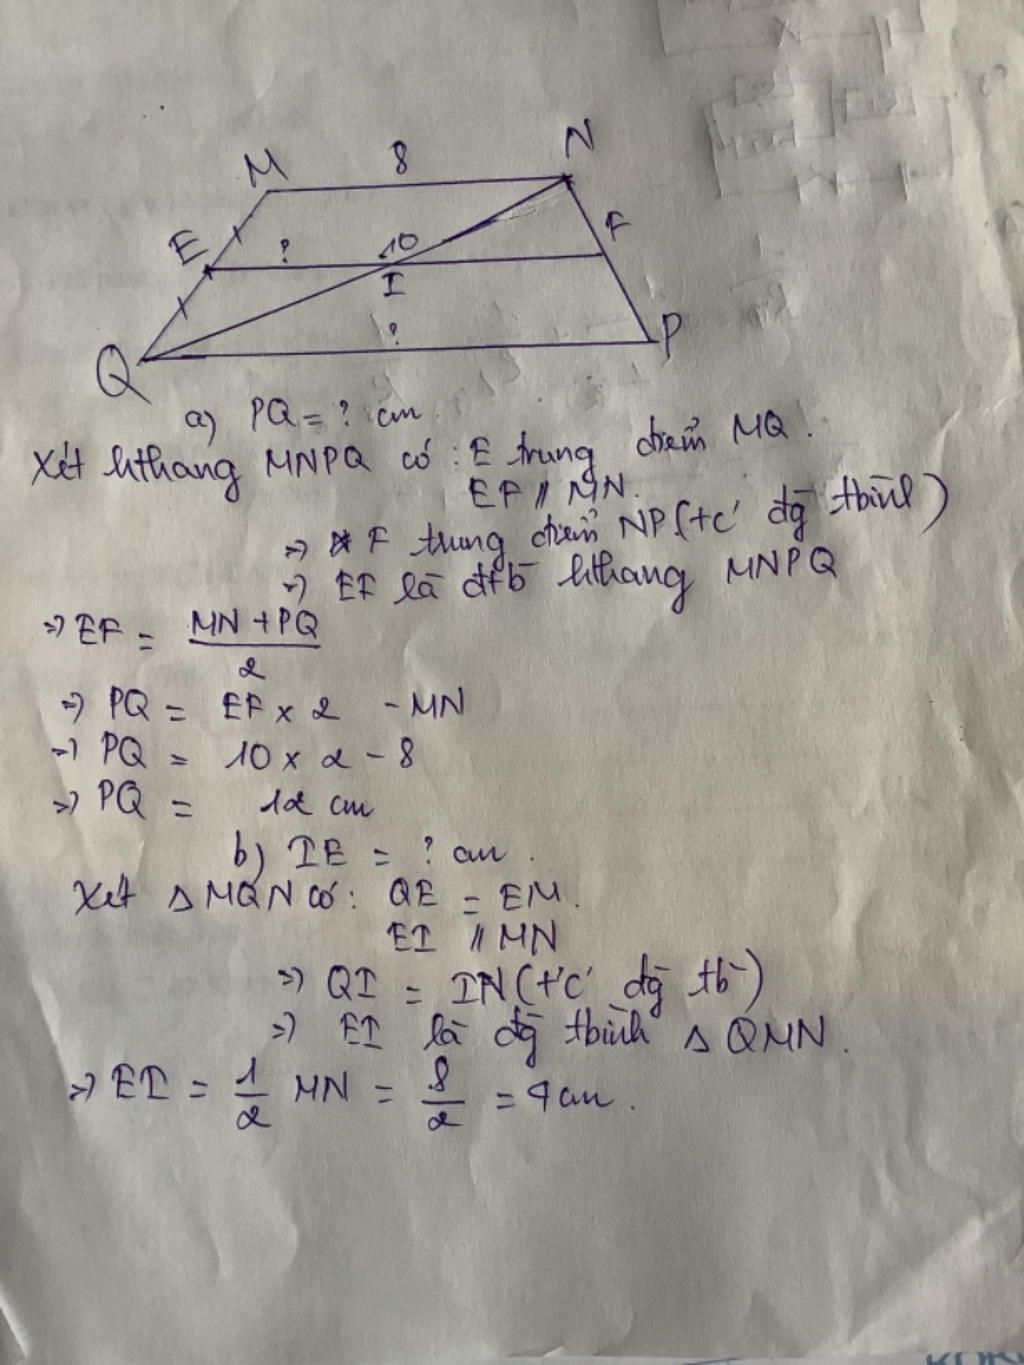 M 8 N
E ? 10 F
I
?
Q P
a) PQ = ? cm.
Xét hthang MNPQ có : E trung điểm MQ.
EF // MN.
=> F trung điểm NP (t/c' đg tbình)
=> EF là đtb hthang MNPQ
=> EF = MN + PQ / 2
=> PQ = EF x 2 - MN
=> PQ = 10 x 2 - 8
=> PQ = 12 cm
b) IE = ? cm.
Xét Δ MQN có: QE = EM.
EI // MN
=> QI = IN (t/c' đg tb)
=> EI là đg tbình Δ QMN.
=> EI = 1/2 MN = 8/2 = 4cm.